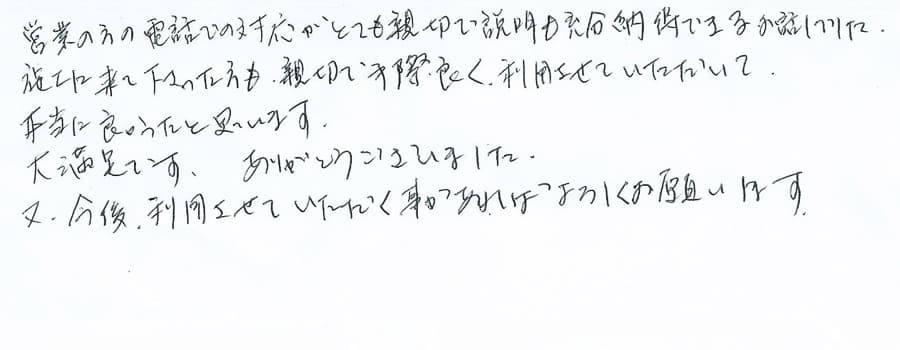 営業の方の電話での対応がとても親切で説明も充分納得できるお話でした.
施工に来て下さった方も、親切で手際良く、利用させていただいて、
本当に良かったと思います.
大満足です、ありがとうございました.
又、今後、利用させていただく事があればよろしくお願います.